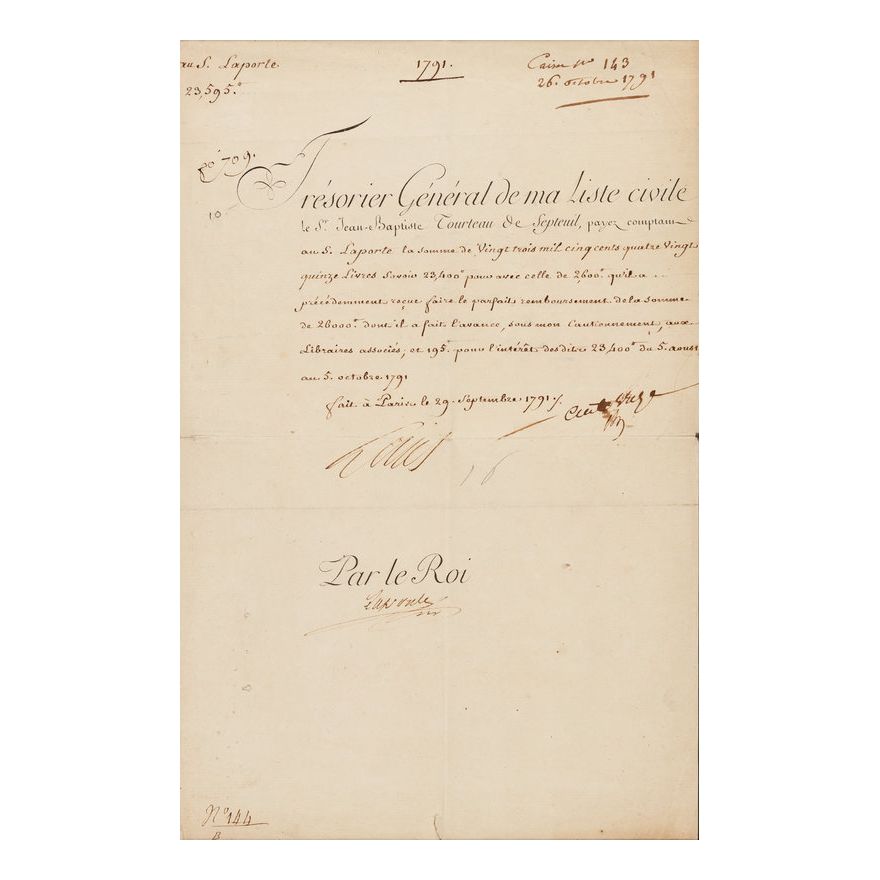 au S. Laporte
1791.
Caisse No 143
26. octobre 1791
23,595.
709.
10
Trésorier Général de ma Liste civile
le Sr. Jean-Baptiste Tourteau de Septeuil, payez comptant
au S. Laporte la somme de Vingt trois mil cinq cents quatre Vingt
quinze Livres Savoir 23,400# pour avec celle de 2600# qu'il a ..
précédemment reçue faire le parfait remboursement de la somme
de 26000# dont il a fait l'avance, sous mon Cautionnement, aux
Libraires associés, et 195# pour l'intérêt desdits 23,400# du 5. aoust
au 5. octobre 1791
fait à Paris le 29. Septembre 1791 ./.
Louis
16
Par le Roi
Laporte
No 144
B